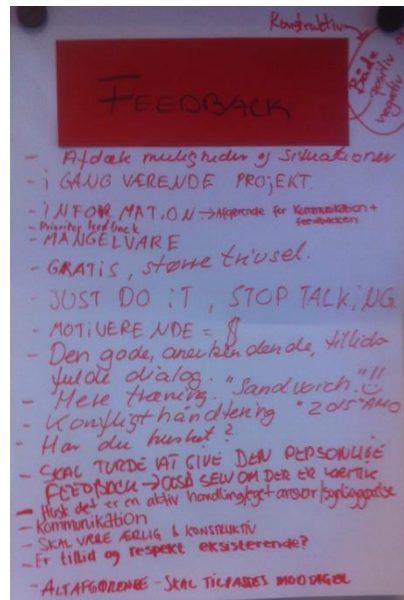 Konstruktiv
Både
positiv
negativ
FEEDBACK
- Afdæk muligheder og situationer
- i GANG VÆRENDE PROJEKT.
- INFORMATION → Afgørende for kommunikation +
feedbacken
- Prioriter feedback
- MANGELVARE
- GRATIS, større trivsel.
- JUST DO iT, STOP TALKiNG
- MOTIVERENDE =
- Den gode, anerkendende, tillids
fulde dialog. "Sandwich"!!
- Mere træning.
- Konflikthåndtering "2015" AMO
- Har du husket?
- SKAL TURDE AT GIVE DEN PERSONLIGE
FEEDBACK → OGSÅ SELV OM DER ER KRITIK
- Husk det er en aktiv handling/eget ansvar/
- Kommunikation
- SKAL VÆRE ÆRLIG & KONSTRUKTIV
- Er tillid og respekt eksisterende?
- ALTAFGØRENDE - SKAL TILPASSES MODTAGER